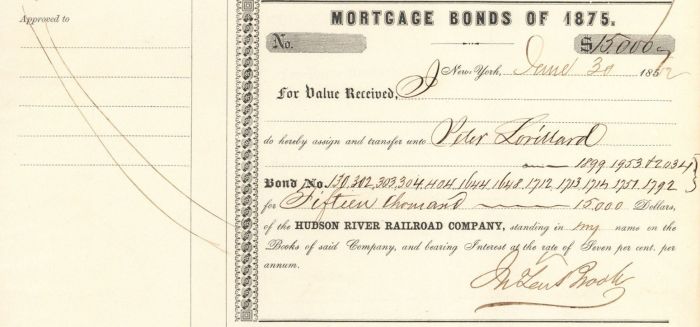 Approved to
MORTGAGE BONDS OF 1875.
No. $15,000
New-York, June 30 185
For Value Received, I
do hereby assign and transfer unto Peter Lorillard
1899.1953 & 2034
Bond No. 130,302,303,304,404,1644,1648,1712,1713,1714,1751,1792
for Fifteen thousand 15.000 Dollars,
of the HUDSON RIVER RAILROAD COMPANY, standing in my name on the
Books of said Company, and bearing Interest at the rate of Seven per cent. per
annum.